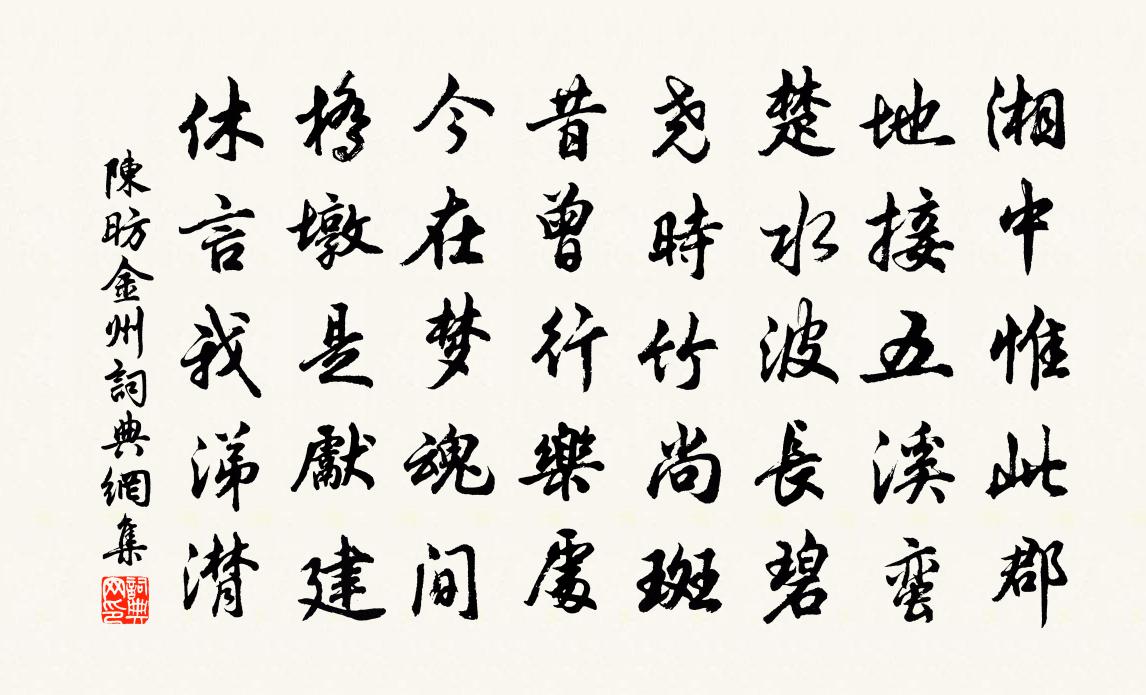 湘中惟此郡
地接五溪蛮
楚水波長碧
尧時竹尚斑
昔曾行樂處
今在梦魂间
橋墩是獻建
休言我涕潸
陳昉金州詞典網集
詞典网印